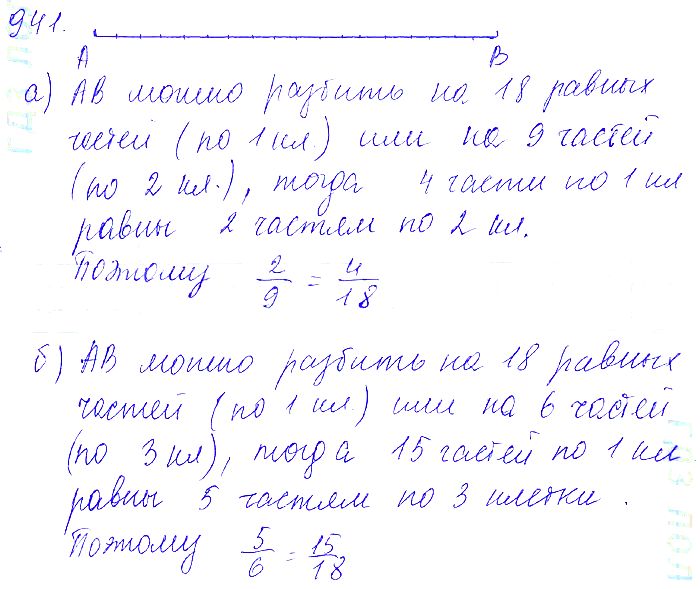 941.
A B
а) АВ можно разбить на 18 равных
частей (по 1 кл.) или на 9 частей
(по 2 кл.), тогда 4 части по 1 кл
равны 2 частям по 2 кл.
Поэтому 2/9 = 4/18
б) АВ можно разбить на 18 равных
частей (по 1 кл.) или на 6 частей
(по 3 кл), тогда 15 частей по 1 кл
равны 5 частям по 3 клетки.
Поэтому 5/6 = 15/18